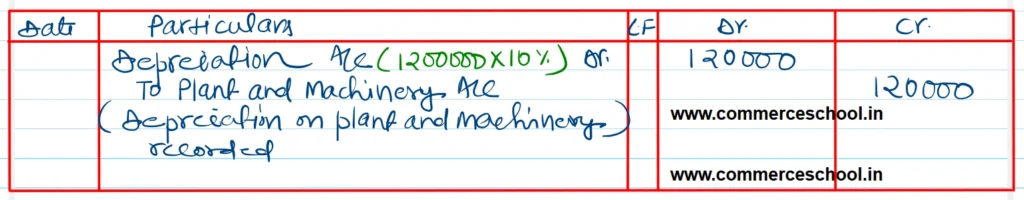 Date Particulars LF Dr. Cr.
Depreciation A/c (1200000×10%) Dr. 120000
To Plant and Machinery A/c 120000
(Depreciation on plant and machinery www.commerceschool.in
recorded
www.commerceschool.in